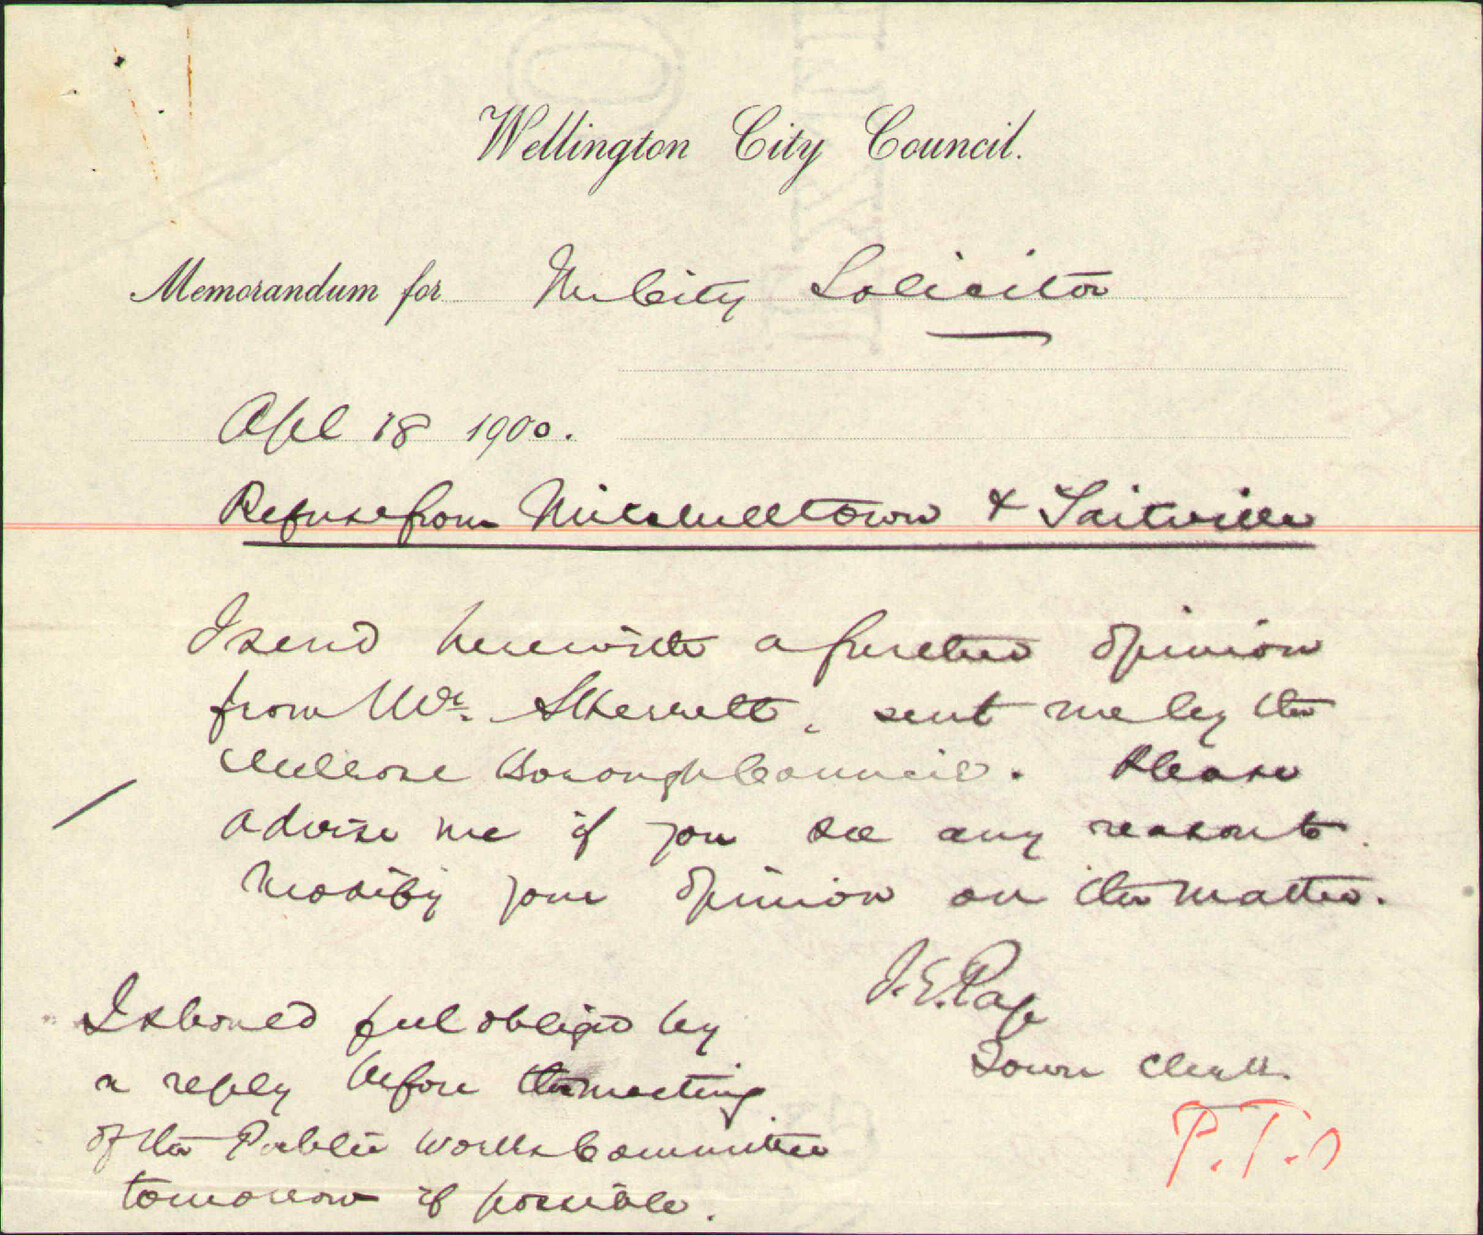 Wellington City Council.
Memorandum for The City Solicitor
Apl 18 1900.
Refuse from Mitchelltown & Taitville
I send herewith a further opinion
from Mr. Skerrett, sent me by the
Melrose Borough Council. Please
advise me if you see any reason to
modify your opinion on the matter.
J. E. Page
Town Clerk.
I should feel obliged by
a reply before the meeting
of the Public Works Committee
tomorrow if possible.
P.T.O